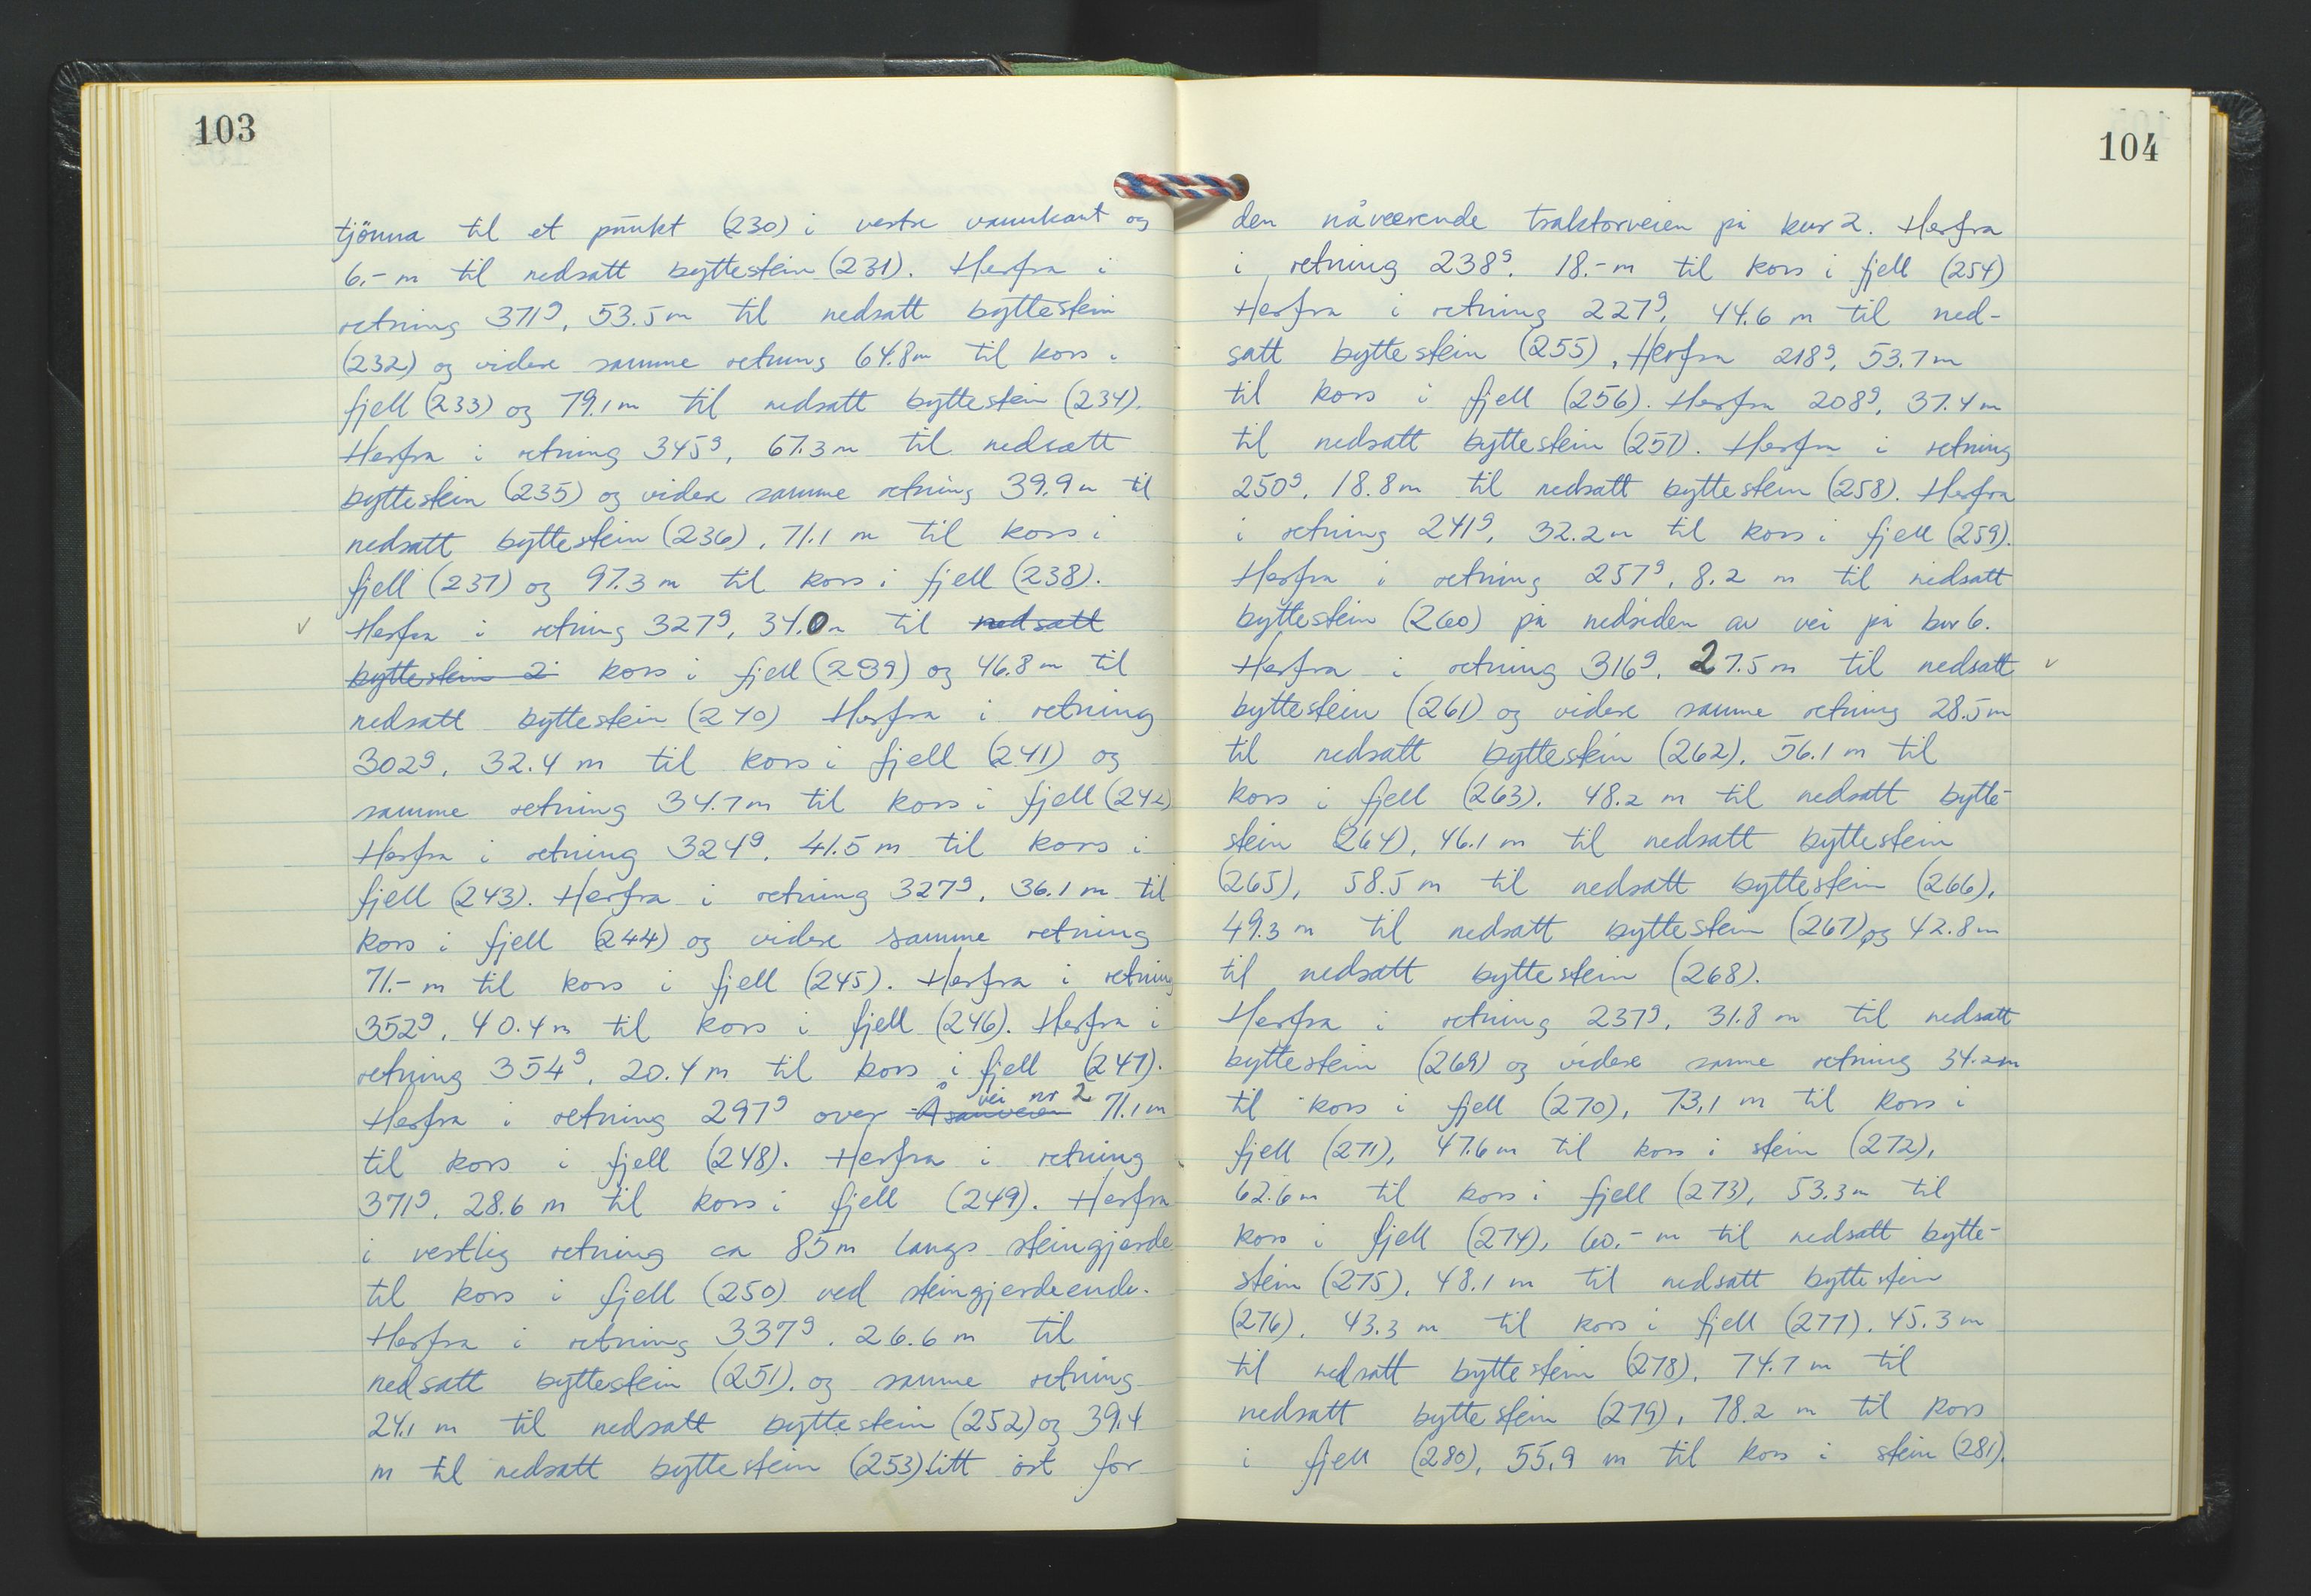 103
tjönna til et punkt (230) i vestre vannkant og
6.- m til nedsatt byttestein (231). Herfra i
retning 371g, 53.5 m til nedsatt byttestein
(232) og videre samme retning 64.8 m til kors i
fjell (233) og 79.1 m til nedsatt byttestein (234).
Herfra i retning 345g, 67.3 m til nedsatt
byttestein (235) og videre samme retning 39.9 m til
nedsatt byttestein (236), 71.1 m til kors i
fjell (237) og 97.3 m til kors i fjell (238).
v Herfra i retning 327g, 34.0 m til nedsatt
byttestein 2 kors i fjell (239) og 46.8 m til
nedsatt byttestein (240) Herfra i retning
302g, 32.4 m til kors i fjell (241) og
samme retning 34.7 m til kors i fjell (242)
Herfra i retning 324g, 41.5 m til kors i
fjell (243). Herfra i retning 327g, 36.1 m til
kors i fjell (244) og videre samme retning
71.- m til kors i fjell (245). Herfra i retning
352g, 40.4 m til kors i fjell (246). Herfra i
retning 354g, 20.4 m til kors i fjell (247).
vei nr 2
Herfra i retning 297g over Åsanveien 71.1 m
til kors i fjell (248). Herfra i retning
371g, 28.6 m til kors i fjell (249). Herfra
i vestlig retning ca 85 m langs steingjerde
til kors i fjell (250) ved steingjerdeende.
Herfra i retning 337g, 26.6 m til
nedsatt byttestein (251). og samme retning
24.1 m til nedsatt byttestein (252) og 39.4
m til nedsatt byttestein (253) litt öst for
104
den nåværende traktorveien på bnr 2. Herfra
i retning 238g, 18.- m til kors i fjell (254)
Herfra i retning 227g, 44.6 m til ned-
satt byttestein (255), Herfra 218g, 53.7 m
til kors i fjell (256). Herfra 208g, 37.4 m
til nedsatt byttestein (257). Herfra i retning
250g, 18.8 m til nedsatt byttestein (258). Herfra
i retning 241g, 32.2 m til kors i fjell (259).
Herfra i retning 257g, 8.2 m til nedsatt
byttestein (260) på nedsiden av vei på bnr 6.
Herfra i retning 316g, 27.5 m til nedsatt v
byttestein (261) og videre samme retning 28.5 m
til nedsatt byttestein (262), 56.1 m til
kors i fjell (263). 48.2 m til nedsatt bytte-
stein (264), 46.1 m til nedsatt byttestein
(265), 58.5 m til nedsatt byttestein (266),
49.3 m til nedsatt byttestein (267) og 42.8 m
til nedsatt byttestein (268).
Herfra i retning 237g, 31.8 m til nedsatt
byttestein (269) og videre samme retning 34.2 m
til kors i fjell (270), 73,1 m til kors i
fjell (271), 47.6 m til kors i stein (272),
62.6 m til kors i fjell (273), 53.3 m til
kors i fjell (274), 60.- m til nedsatt bytte-
stein (275), 48.1 m til nedsatt byttestein
(276), 43.3 m til kors i fjell (277), 45.3 m
til nedsatt byttestein (278), 74.7 m til
nedsatt byttestein (279), 78.2 m til kors
i fjell (280), 55,9 m til kors i stein (281).